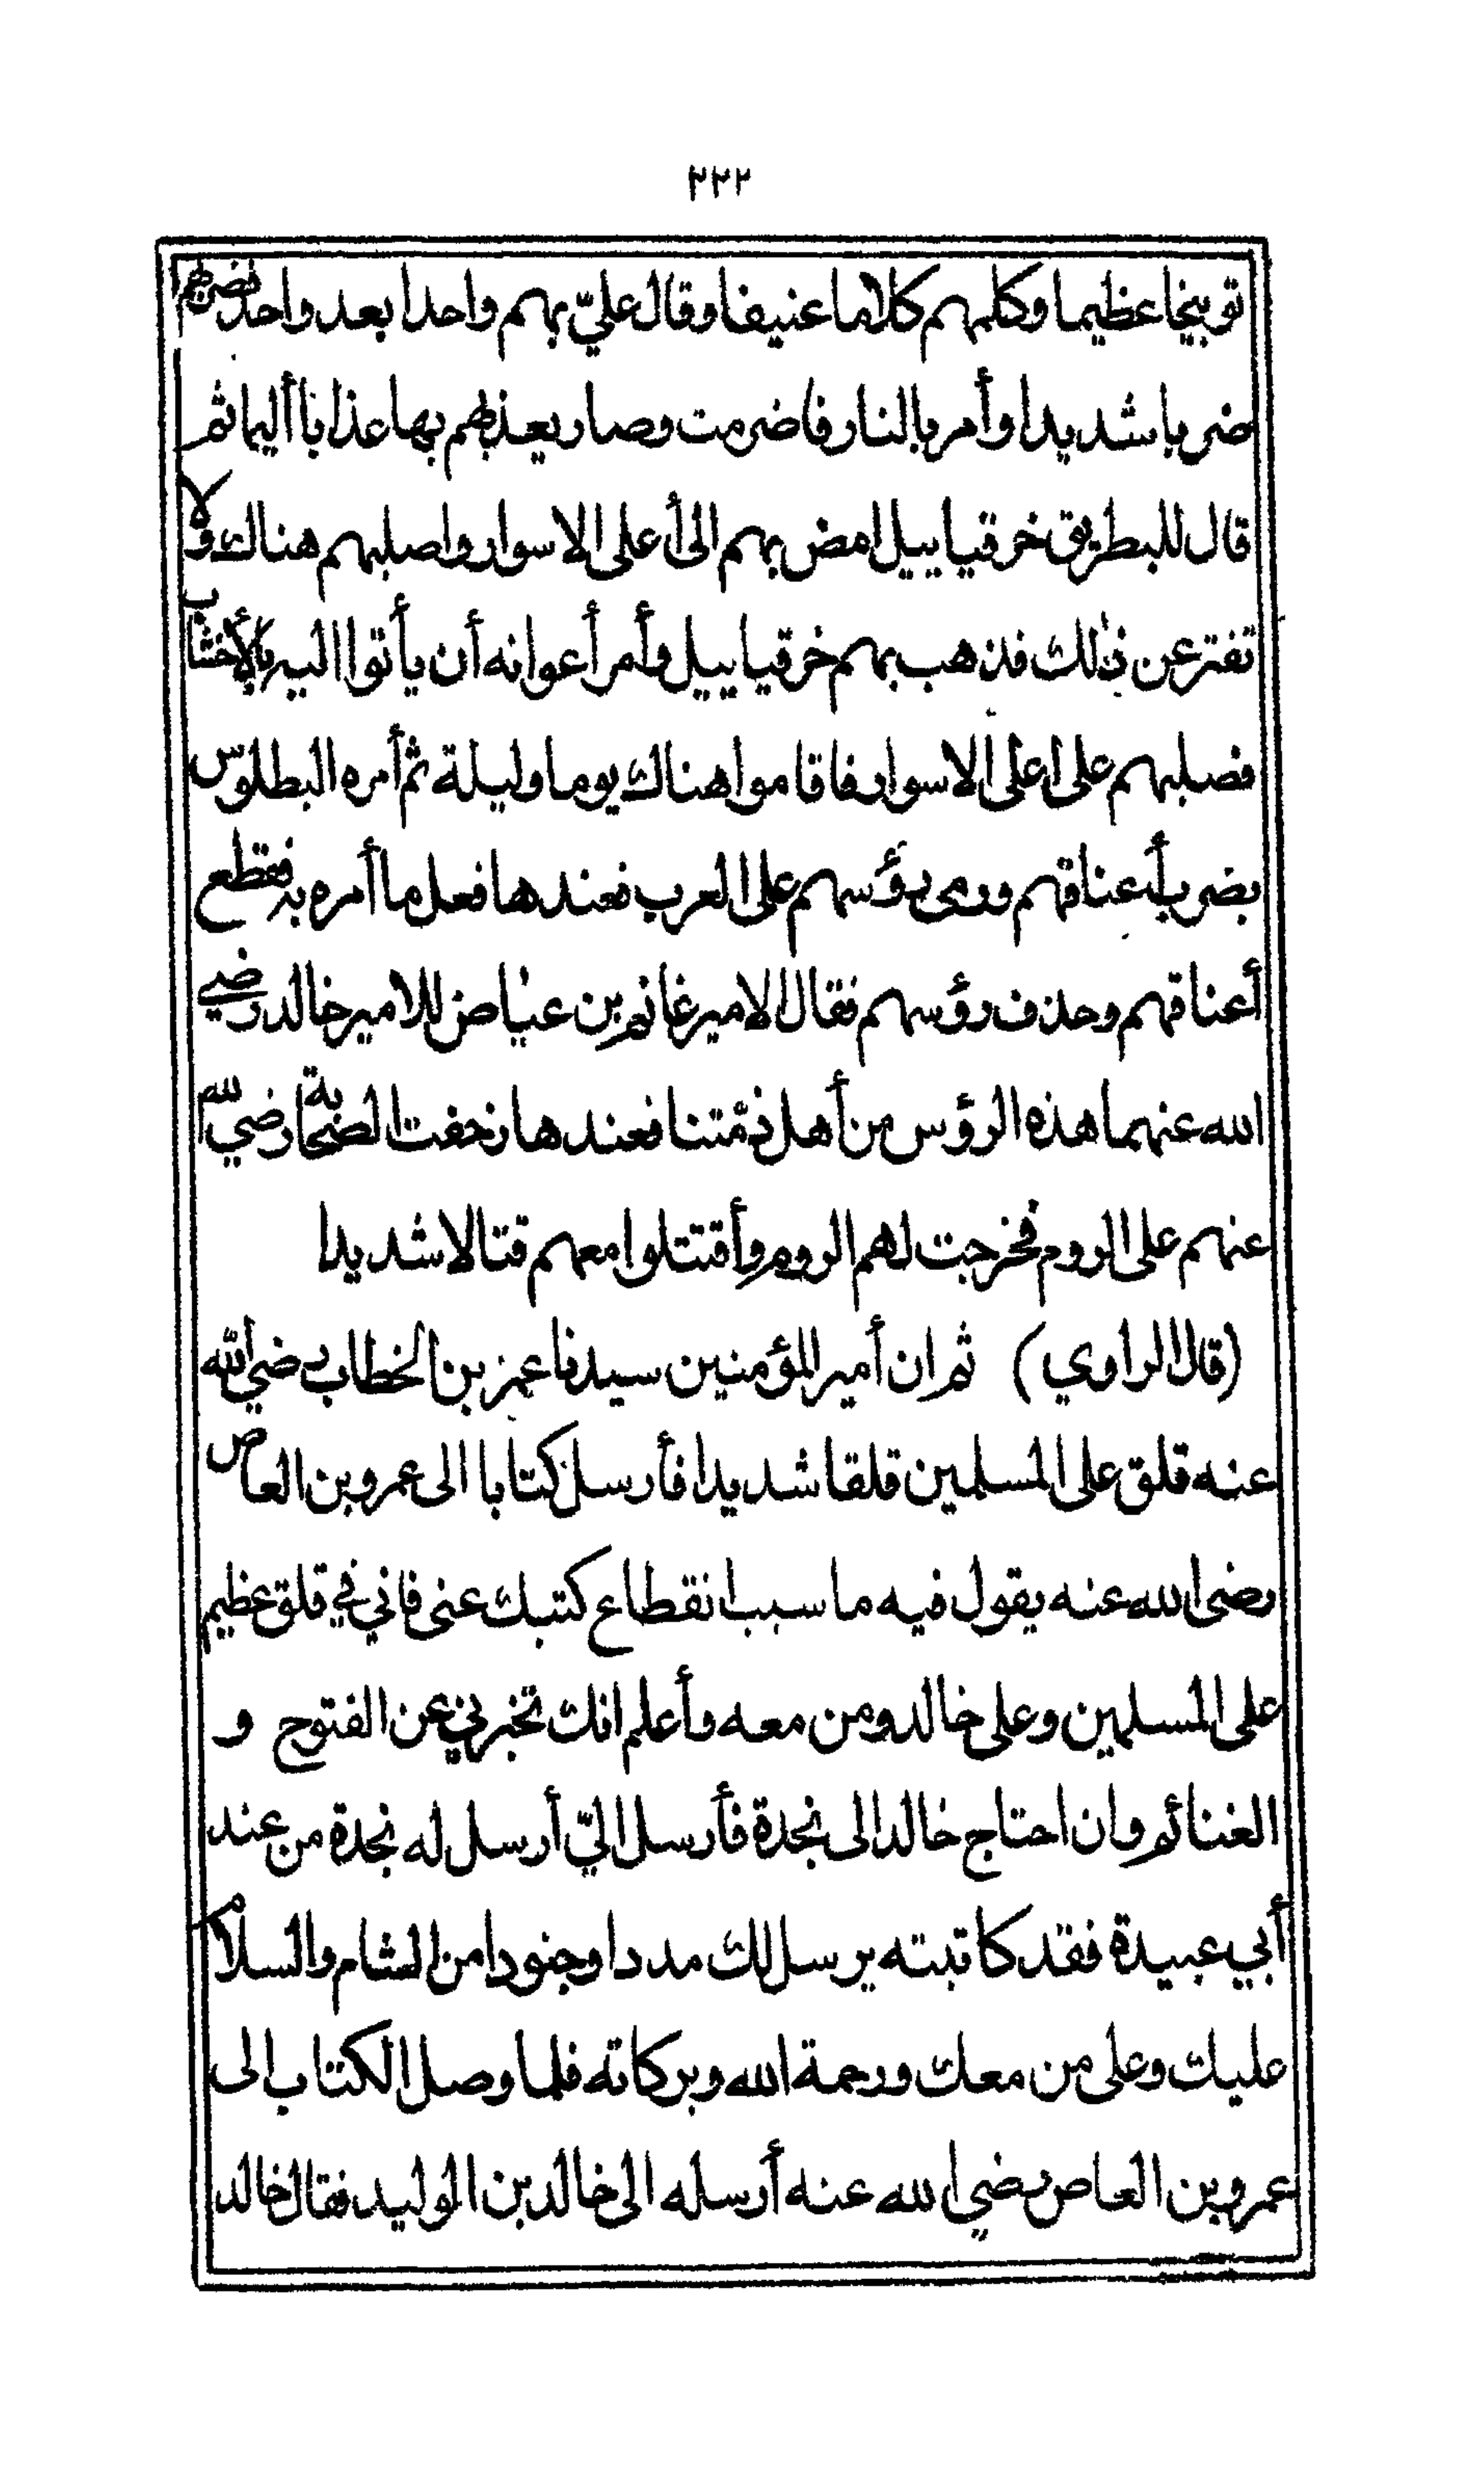 ٢٢٢
توبيخا عظيما وكلمهم كلاما عنيفا وقال عليّ بهم واحدا بعد واحد فضربهم
ضربا شديدا وأمر بالنار فاضرمت وصار يعذبهم بها عذابا أليما ثم
قال للبطريق خرقياييل امض بهم الى أعلى الاسوار واصلبهم هناك ولا
تفتر عن ذلك فذهب بهم خرقياييل وأمر أعوانه أن يأتوا اليه بالأخشاب
فصلبهم على اعلى الاسوار فاقاموا هناك يوما وليلة ثم أمره البطلوس
بضرب أعناقهم ورمى برؤسهم على العرب فعندها فعل ما أمره به فقطع
أعناقهم وحذف رؤسهم فقال الامير غانم بن عياض للامير خالد رضي
الله عنهما هذه الرؤس من أهل ذمتنا فعندها زحفت الصحابة رضي الله
عنهم على الروم فخرجت لهم الروم وأقتتلوا معهم قتالا شديدا
(قال الراوي) ثم ان أمير المؤمنين سيدنا عمر بن الخطاب رضي الله
عنه قلق على المسلمين قلقا شديدا فأرسل كتابا الى عمرو بن العاص
رضى الله عنه يقول فيه ما سبب انقطاع كتبك عنى فاني في قلق عظيم
على المسلمين وعلى خالد ومن معه وأعلم انك تخبرني عن الفتوح و
الغنائم وان احتاج خالد الى نجدة فأرسل اليّ أرسل له نجدة من عند
أبي عبيدة فقد كاتبته يرسل لك مددا وجنودا من الشام والسلام
عليك وعلى من معك ورحمة الله وبركاته فلما وصل الكتاب الى
عمرو بن العاص رضي الله عنه أرسله الى خالد بن الوليد فقال خالد